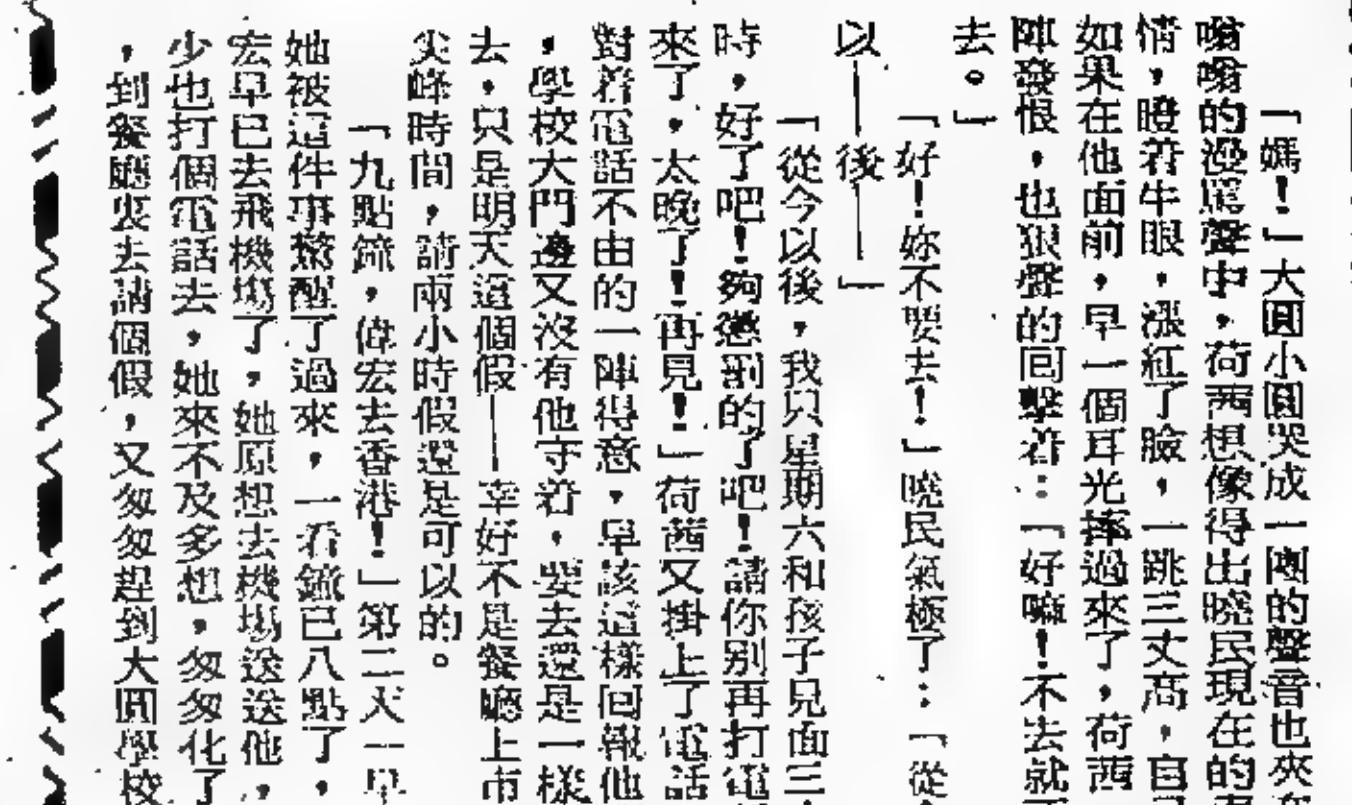 「媽！」大圓小圓哭成一團的聲音也夾
嗡嗡的漫罵聲中，荷茜想像得出曉民現在的
情，瞪着牛眼，漲紅了臉，一跳三丈高，自
如果在他面前，早一個耳光摔過來了，荷茜
陣發恨，也狠聲的回擊着：「好嘛！不去就
去。」
「好！妳不要去！」曉民氣極了：「從
以——後——」
「從今以後，我只星期六和孩子見面三
時，好了吧！夠懲罰的了吧！請你別再打電
來了，太晚了！再見！」荷茜又掛上了電話
對着電話不由的一陣得意，早該這樣回報他
，學校大門邊又沒有他守着，要去還是一樣
去，只是明天這個假——幸好不是餐廳上市
尖峰時間，請兩小時假還是可以的。
「九點鐘，偉宏去香港！」第二天一早
她被這件事驚醒了過來，一看鐘已八點了，
宏早已去飛機場了，她原想去機場送送他，
少也打個電話去，她來不及多想，匆匆化了
，到餐廳裏去請個假，又匆匆趕到大圓學校